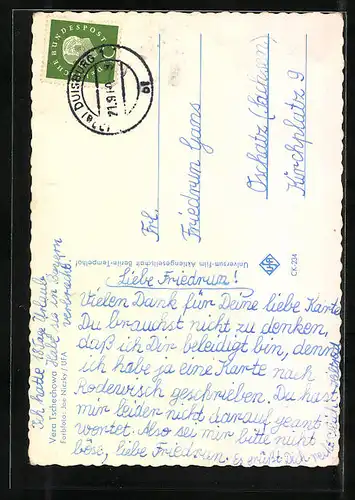 DEUTSCHE BUNDESPOST
DUISBURG
21.9.60
Frl.
Friedrun Gans
Oschatz (Sachsen)
Kirchplatz 9
Universum-Film Aktiengesellschaft Berlin-Tempelhof
UFA
CK-234
Vera Tschechowa
Farbfoto: Joe Niczky / UFA
Liebe Friedrun!
Vielen Dank für Deine liebe Karte
Du brauchst nicht zu denken,
daß ich Dir beleidigt bin, denn
ich habe ja eine Karte nach
Rodewisch geschrieben. Du hast
mir leider nicht darauf geant
wortet. Also sei mir bitte nicht
böse, liebe Friedrun. Es grüßt Dich
Ich hatte Tage Urlaub
habe sie in Bayern
verbracht